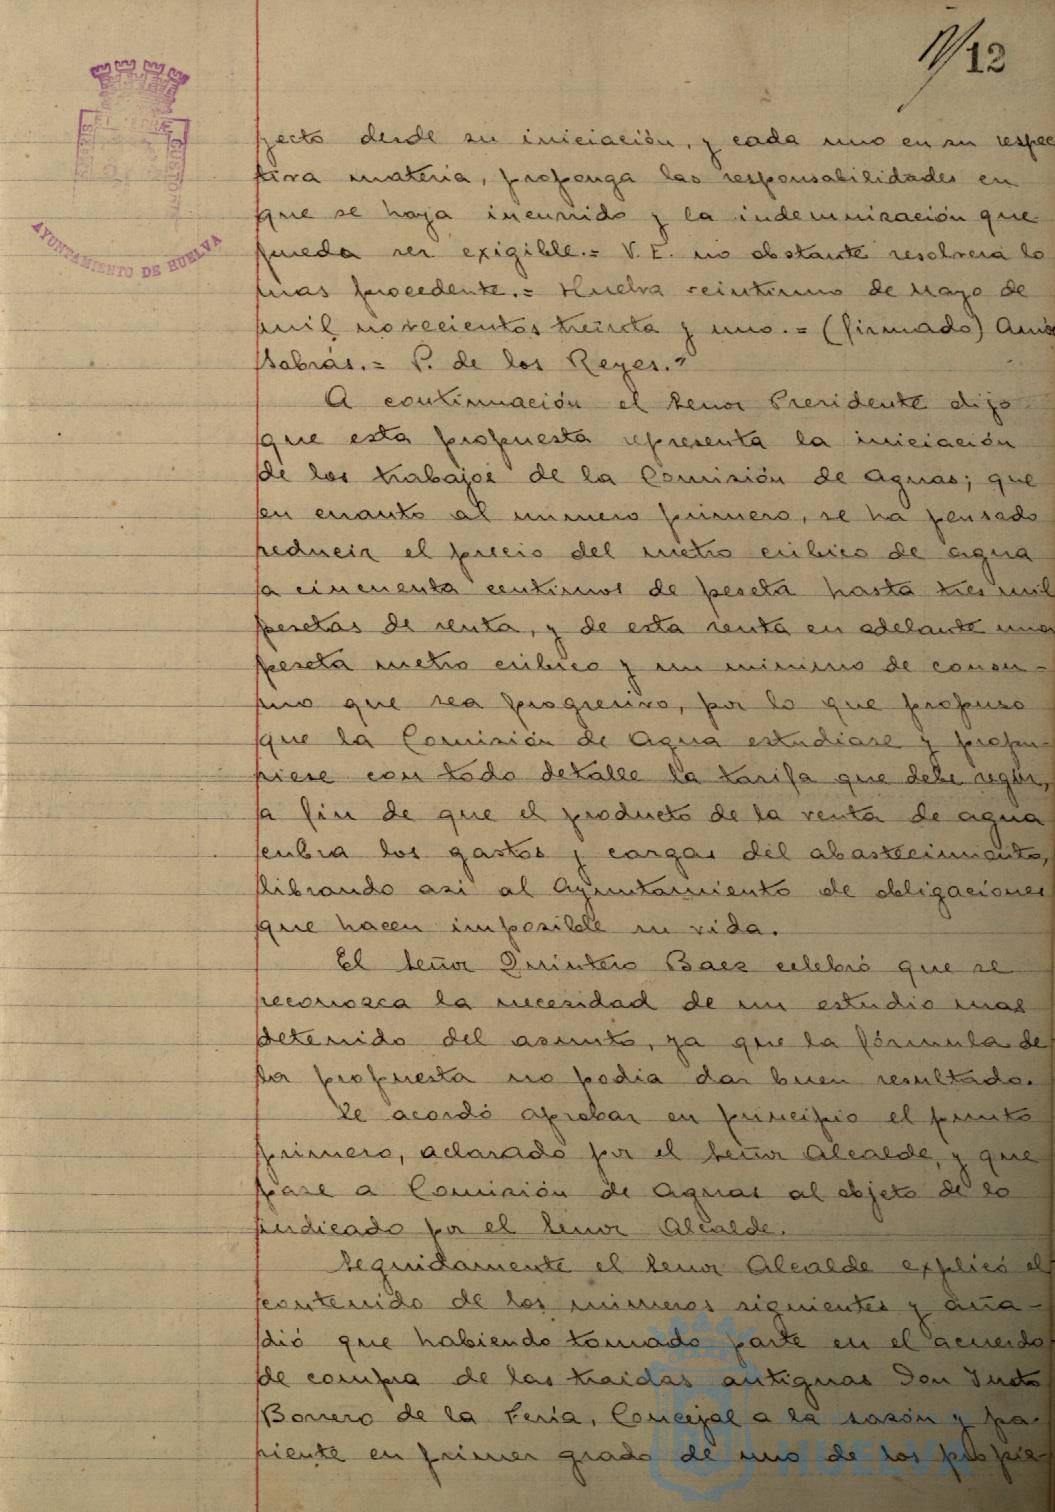 12
AYUNTAMIENTO DE HUELVA
yecto desde su iniciación, y cada uno en su respec
tiva materia, proponga las responsabilidades en
que se haya incurrido y la indemnización que
pueda ser exigible.= V. E. no obstante resolverá lo
mas procedente.= Huelva veintiuno de Mayo de
mil novecientos treinta y uno.= (firmado) Amós
Sabrás.= P. de los Reyes."
A continuación el Señor Presidente dijo
que esta propuesta representa la iniciación
de los trabajos de la Comisión de Aguas; que
en cuanto al numero primero, se ha pensado
reducir el precio del metro cúbico de agua
a cincuenta centimos de peseta hasta tres mil
pesetas de renta, y de esta renta en adelante una
peseta metro cúbico y un minimo de consu-
mo que sea progresivo, por lo que propuso
que la Comisión de Agua estudiase y propu-
siese con todo detalle la tarifa que debe regir,
a fin de que el producto de la venta de agua
cubra los gastos y cargas del abastecimiento,
librando asi al Ayuntamiento de obligaciones
que hacen imposible su vida.
El Señor Quintero Baez celebró que se
reconozca la necesidad de un estudio mas
detenido del asunto, ya que la fórmula de
la propuesta no podia dar buen resultado.
Se acordó aprobar en principio el punto
primero, aclarado por el Señor Alcalde, y que
pase a Comisión de Aguas al objeto de lo
indicado por el Señor Alcalde.
Seguidamente el Senor Alcalde explicó el
contenido de los numeros siguientes y aña-
dió que habiendo tomado parte en el acuerdo
de compra de las traidas antiguas Don Justo
Borrero de la Feria, Concejal a la sazón y pa-
riente en primer grado de uno de los propie-
HUELVA